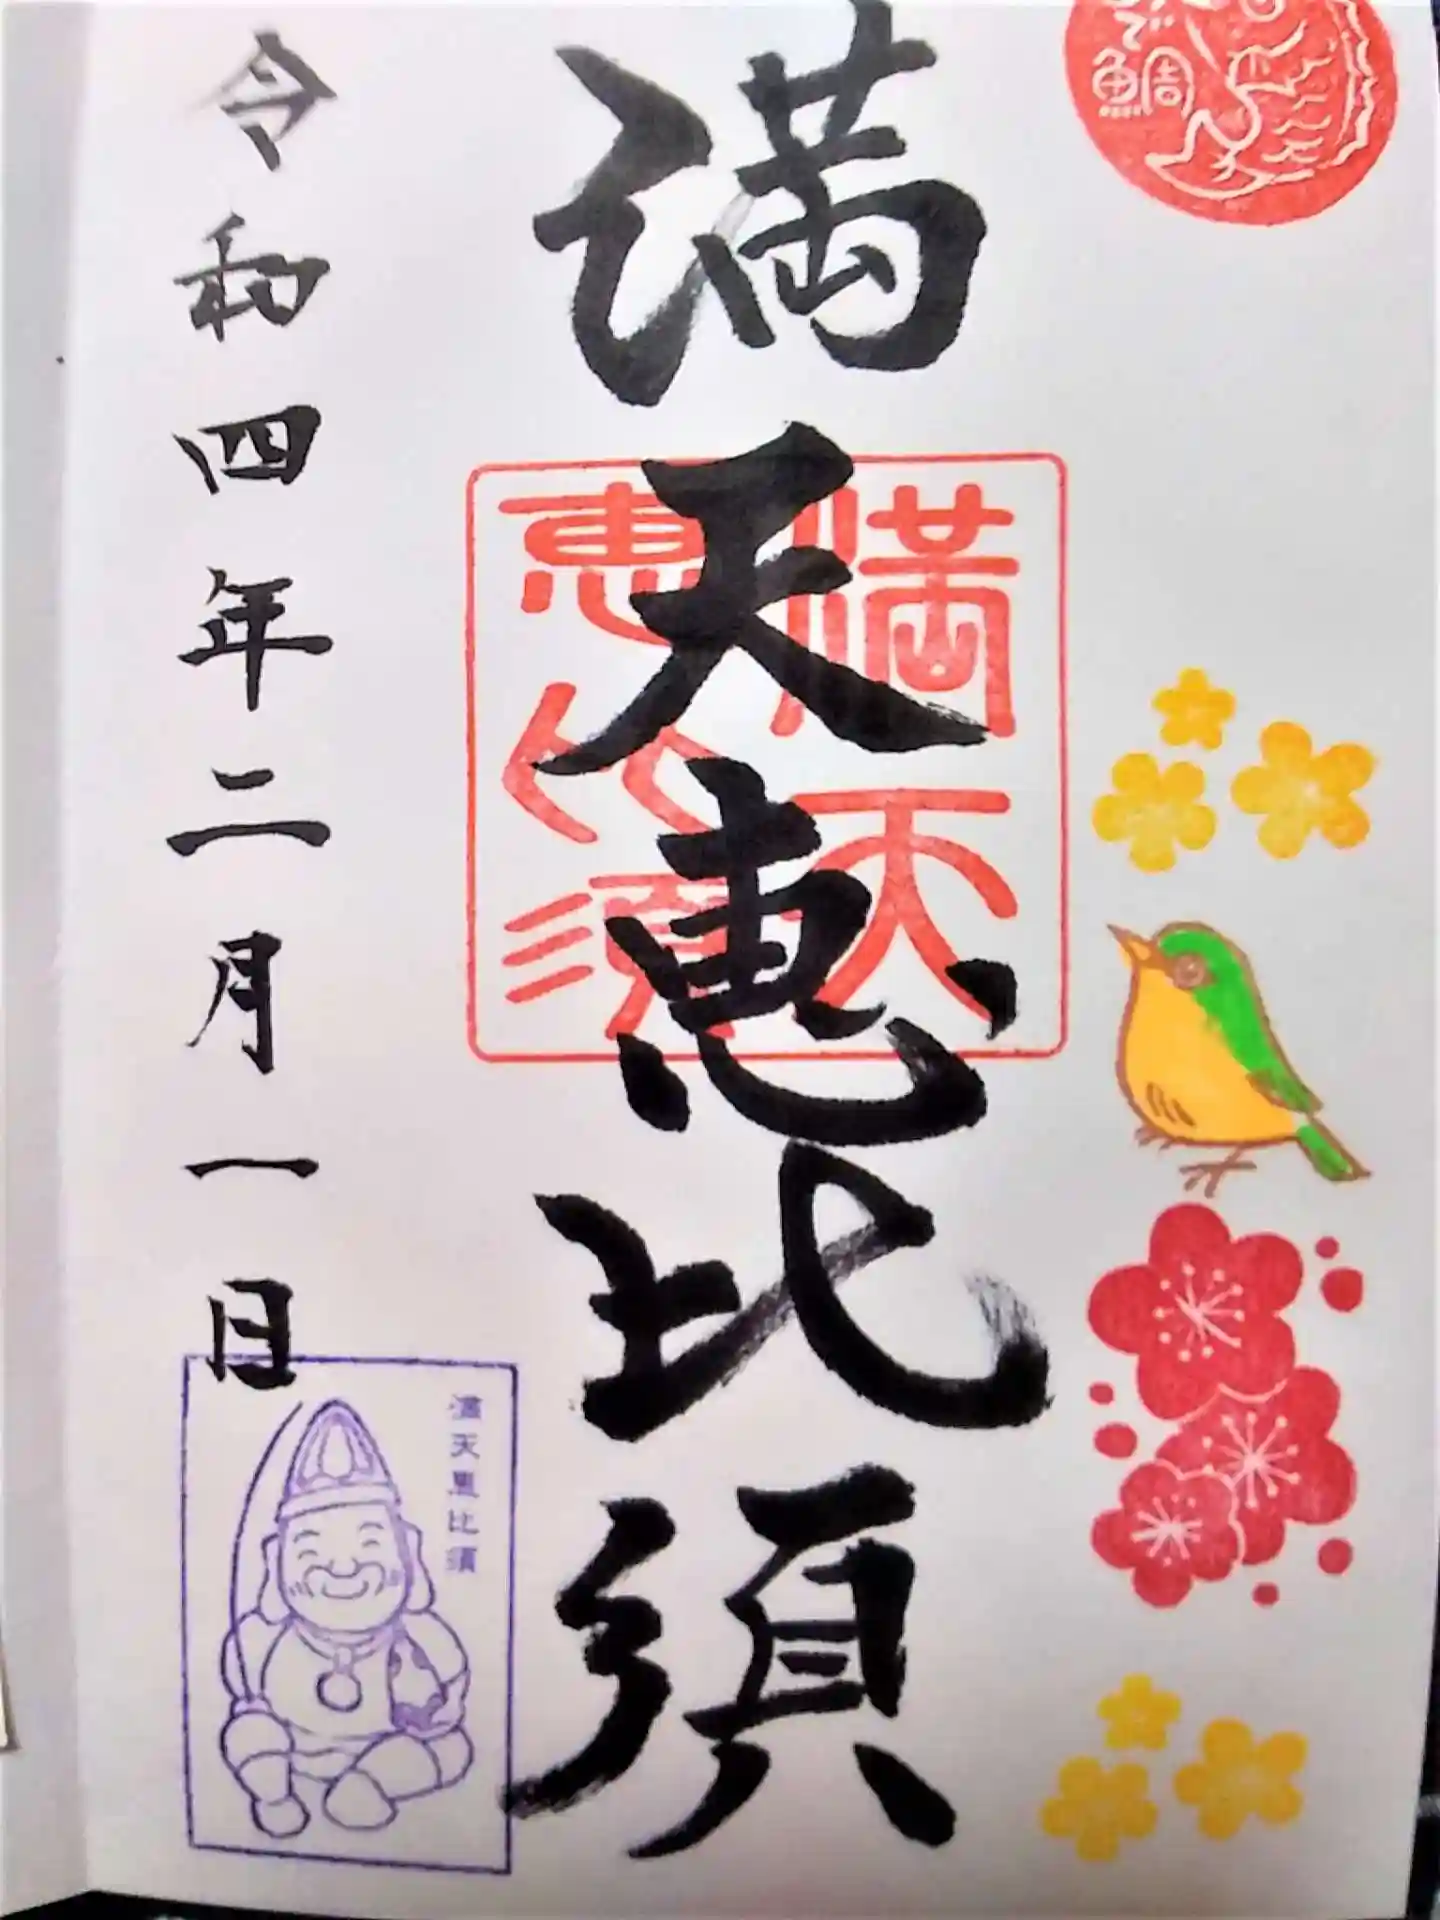 で鯛
満天恵比須
満天
恵比須
満天恵比須
令和四年二月一日